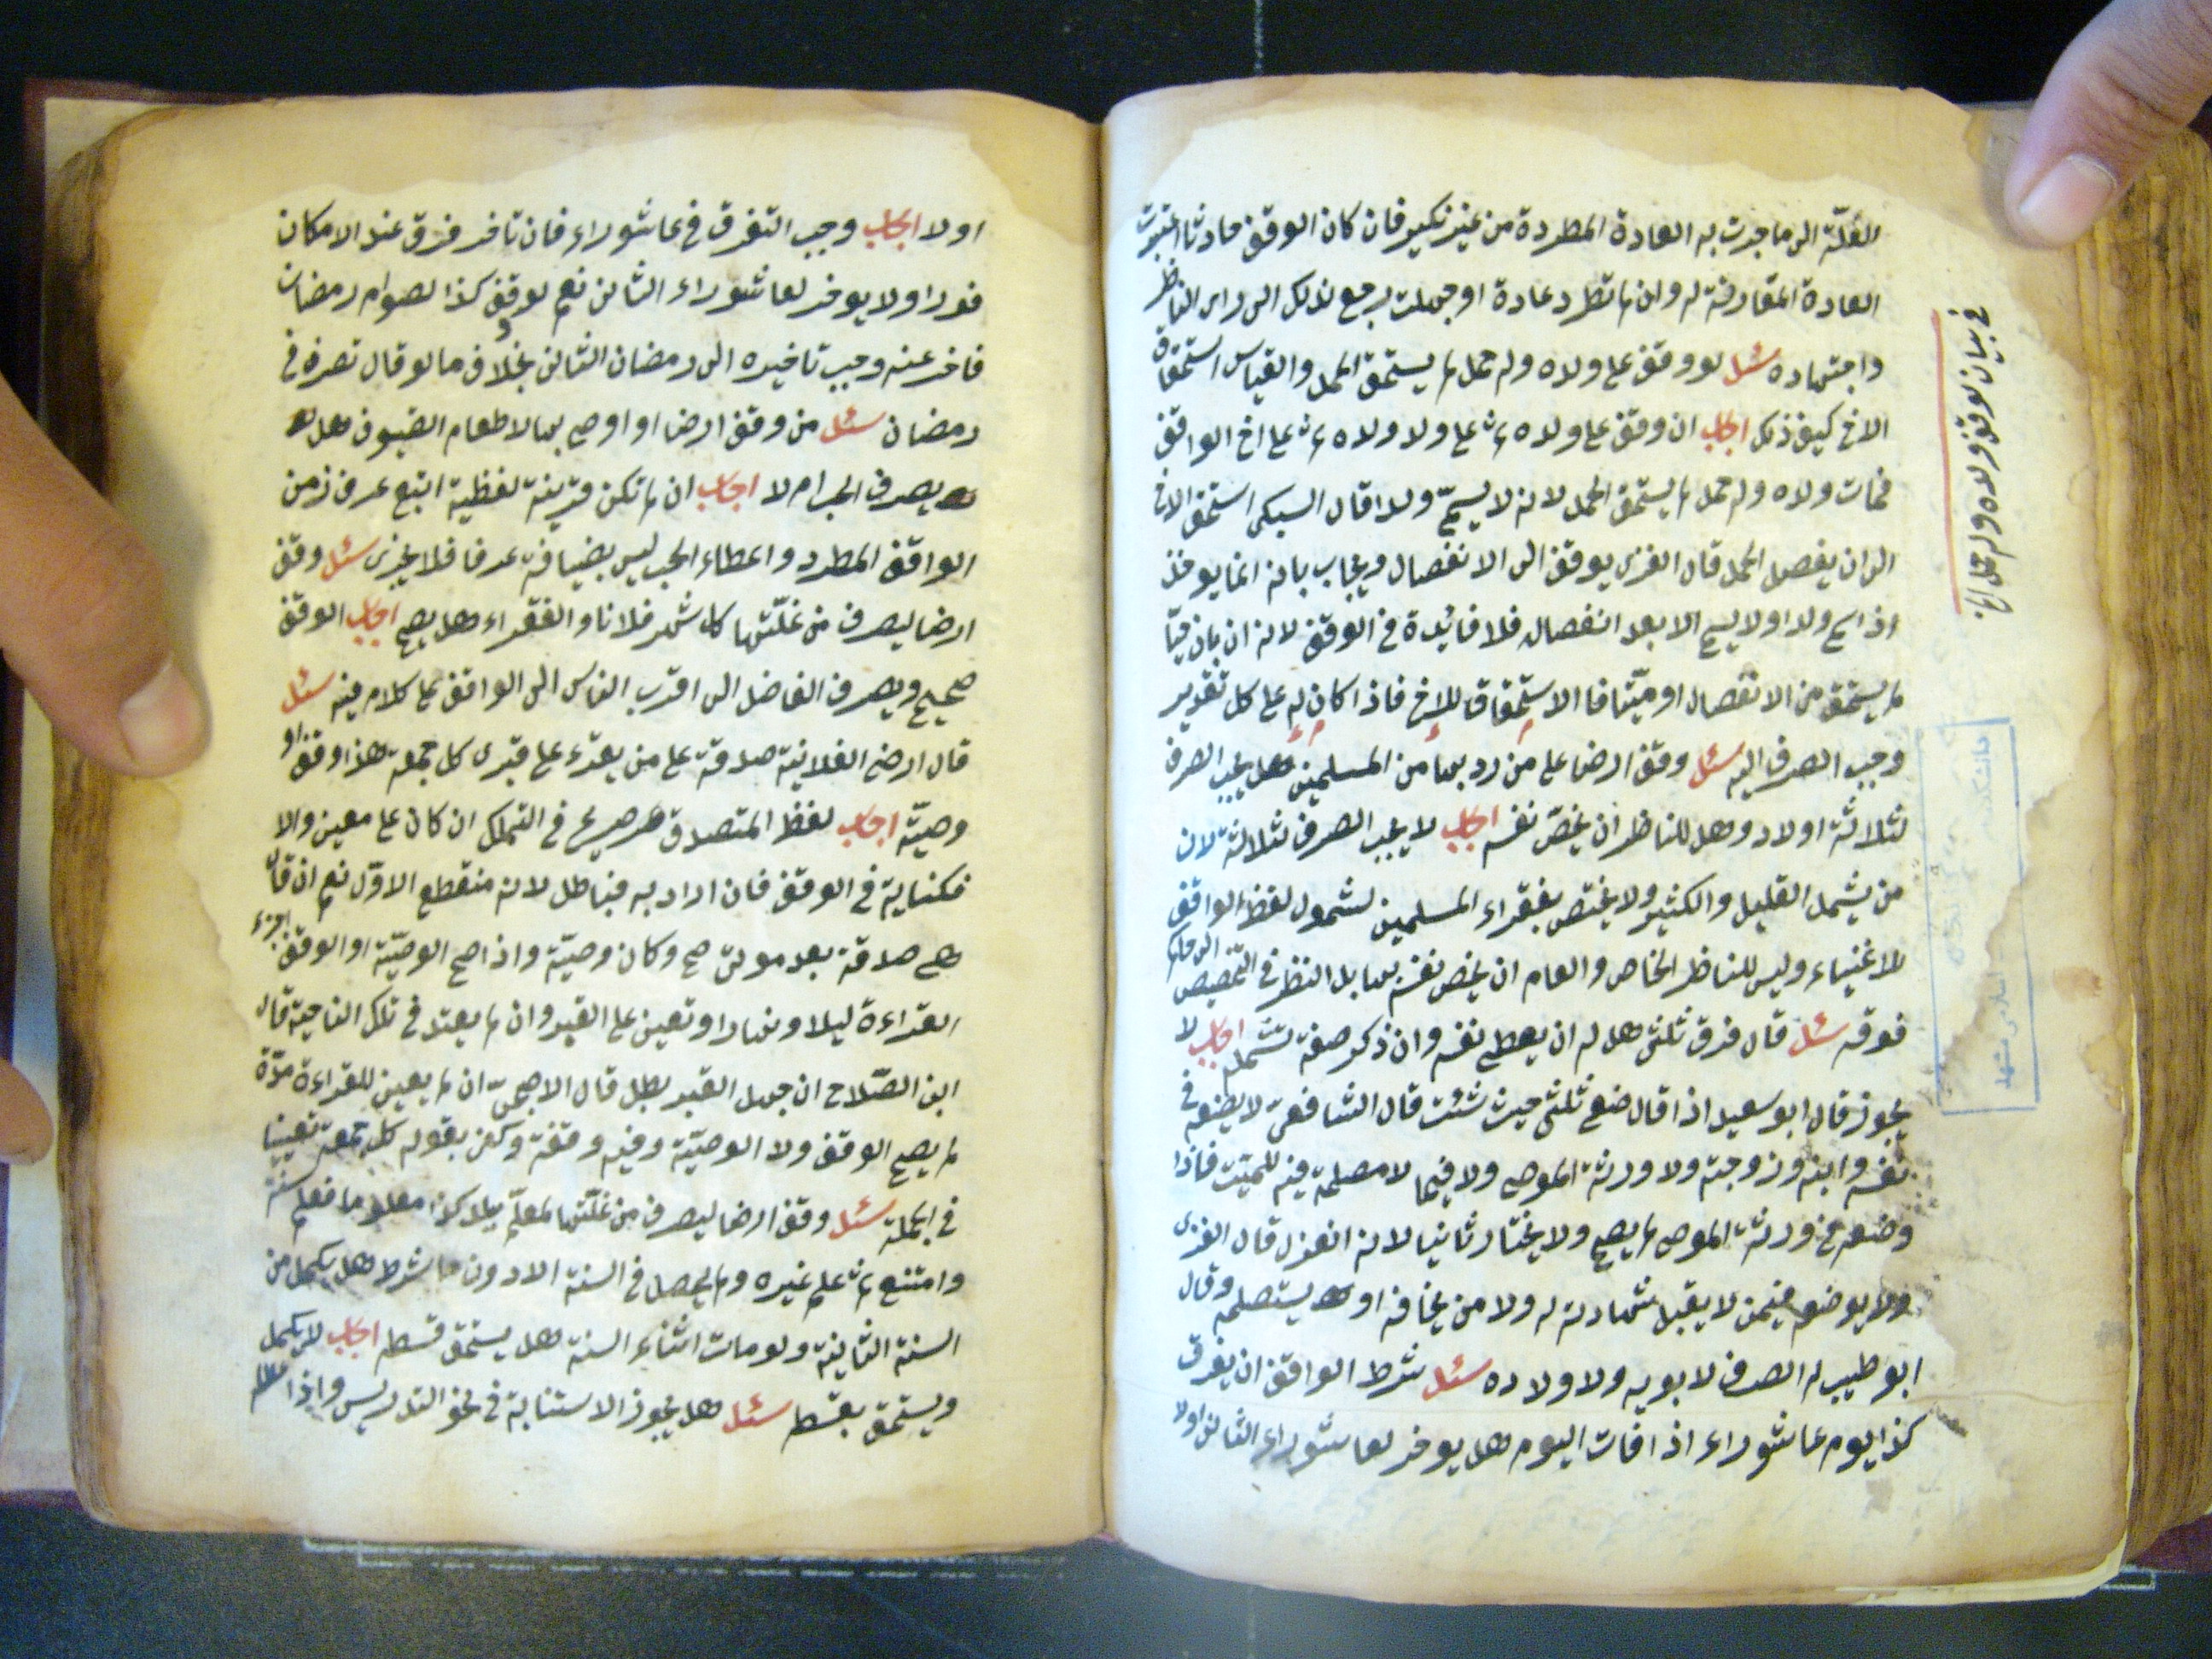 الغلّة الى ما جرت به العادة المطردة من غير نكير فان كان الوقف حادثا اعتبرت
العادة المقارنة له وان لم تطرد عادة او جهلت رجع لذلك الى راى الناظر
واجتهاده سئل لو وقف على ولاه وله حمل لم يستحق الحمل والقياس استحقاق
الاخ كيف ذلك اجاب ان وقف على ولاه ثم على ولا ولاه ثم على اخ الواقف
فمات ولاه وله حمل لم يستحق الحمل لانه لا يسمّى ولدا قال السبكى استحق الاخ
الى ان يفصل الحمل قال الغزى يوقف الى الانفصال ويجاب بانه انما يوقف
اذا سمى ولدا ولا يسمى الا بعد انفصاله فلا فائدة فى الوقف لانه ان بان حيّا
لم يستحق من الانفصال او ميّتا فالاستحقاق للاخ فاذا كان له على كل تقدير
وجب الصرف اليه سئل وقف ارضا على من رد بها من المسلمين هل يجب الصرف
لثلاثة اولاد وهل للناظر ان يخصّ نفسه اجاب لا يجب الصرف لثلاثة لان
من يشمل القليل والكثير ولا يختص بفقراء المسلمين لشمول لفظ الواقف
للاغنياء وليس للناظر الخاص والعام ان يخص نفسه بها بل النظر فى التخصيص الى حاكم
فوقه سئل قال فرق ثلثى هل له ان يعطى نفسه وان ذكر صفة تشمله اجاب لا
يجوز قال ابو سعيد اذا قال ضع ثلثى حيث شئت قال الشافعى لا يضعه فى
نفسه وابنه وزوجته ولا ورثة الموصى ولا فيما لا مصلحة فيه للميّت فاذا
وضعه فى ورثة الموصى لم يصح ولا يختار ثانيا لانه انعزل قال الغزى
ولا يوضع فيمن لا يقبل شهادته له ولا من يخافه او يستصلحه وقال
ابو طيب له الصرف لابويه ولا ولاده سئل شرط الواقف ان يفرق
كذا يوم عاشوراء اذا فات اليوم هل يوخر لعاشوراء الثانى اولا
فى بيان لو وقف ولاه وله حمل الخ
اولا اجاب وجب التفرق فى عاشوراء فان تاخر فرق عند الامكان
فورا ولا يوخر لعاشوراء الثانى نعم لو وقف كذا لصوام رمضان
فاخر عنه وجب تاخيره الى رمضان الثانى بخلاف ما لو قال تصرفه فى
رمضان سئل من وقف ارضا او اوصى بها لاطعام الضيوف هل
يصرف الجرام لا اجاب ان لم تكن قرينة لفظية اتبع عرف زمن
الواقف المطرد واعطاء الحب ليس بضيافة عرفا فلا يجزى سئل وقف
ارضا ليصرف من غلّتها كل شهر فلانا والفقراء هل يصح اجاب الوقف
صحيح ويصرف الفاضل الى اقرب الناس الى الواقف على كلام فيه سئل
قال ارضى الفلانية صدقة على من يقرء على قبرى كل جمعة هذا وقف او
وصيّة اجاب لفظ المتصدق صريح فى التملك ان كان على معين والا
فكناية فى الوقف فان اراد به فباطل لانه منقطع الاوّل نعم ان قال
هى صدقة بعد موتى صح وكان وصيّة واذا صح الوصيّة او الوقف اجزء
القراءة ليلا ونهارا وتعين على القبر وان لم يعتد فى تلك الناحية قال
ابن الصّلاح ان جهل القبر بطل قال الاصبحى ان لم يعين للقراءة مدّة
لم يصح الوقف ولا الوصيّة وفيه وقفة وكفى بقوله كل جمعة تعيينا
فى الجملة سئل وقف ارضا ليصرف من غلّتها لمعلّم بلد كذا معلوما فعلم سنة
وامتنع ثم علم غيره ولم يحصل فى السنة الا دون ما شرط هل يكمل من
السنة الثانية ولو مات اثناء السنة هل يستحق قسطه اجاب لا يكمل
ويستحق بقسطه سئل هل يجوز الاستنابة فى نحو التدريس واذا